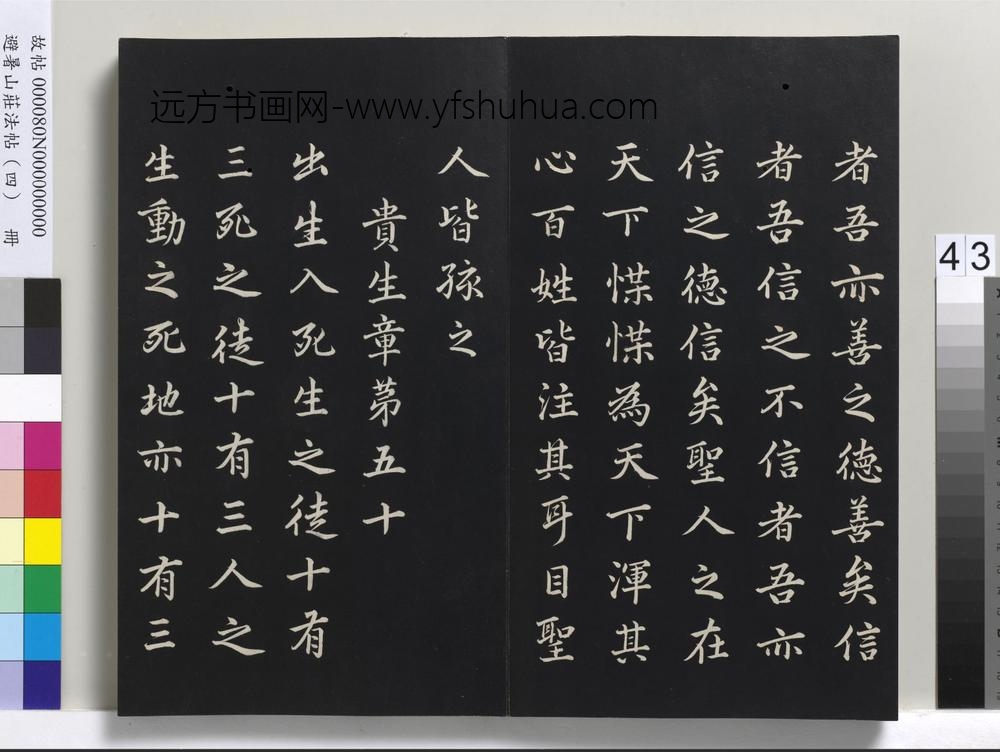 者吾亦善之德善矣信
者吾信之不信者吾亦
信之德信矣聖人之在
天下惵惵為天下渾其
心百姓皆注其耳目聖
人皆孩之
貴生章苐五十
出生入死生之徒十有
三死之徒十有三人之
生動之死地亦十有三
远方书画网-www.yfshuhua.com
故帖000080N000000000
避暑山莊法帖(四) 冊
43